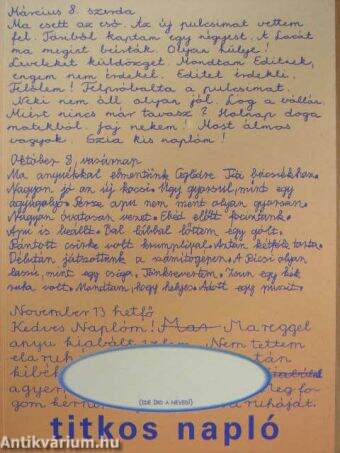 Március 8. szerda
Ma esett az eső. Az új pulcsimat vettem
fel. Töriből kaptam egy négyest. A Lacát
ma megint beírták. Olyan hülye!
Leveleket küldözget. Mondtam Editnek,
engem nem érdekel. Editet érdekli.
Tőlem! Felpróbálta a pulcsimat.
Neki nem áll olyan jól. Lóg a vállán.
Miért nincs már tavasz? Holnap doga
matekból. Jaj nekem! Most álmos
vagyok. Szia kis naplóm!
Október 8, vasárnap
Ma anyukkal elmentünk Ceglédre Titi bácsiékhoz.
Nagyon jó az új kocsi. Úgy gyorsul, mint egy
ágyúgolyó. Persze apu nem ment olyan gyorsan.
Nagyon óvatosan vezet. Ebéd előtt fociztunk.
Apu is beállt. Bal lábbal lőttem egy gólt.
Rántott csirke volt krumplival. Aztán kétféle torta.
Délután játszottunk a számítógépen. A Picsi olyan
lassú, mint egy csiga. Tönkrevertem. Zsun egy kék
ruha volt. Mondtam, hogy helyes. Adott egy puszit.
November 13 hetfő
Kedves Naplóm! Mas Ma reggel
anyu kiabált velem. Nem tettem
el a ruhá tán
kibék
a gyerm meg fo-
gom kérni ruháját.
(IDE ÍRD A NEVED!)
titkos napló
Antikvárium.hu